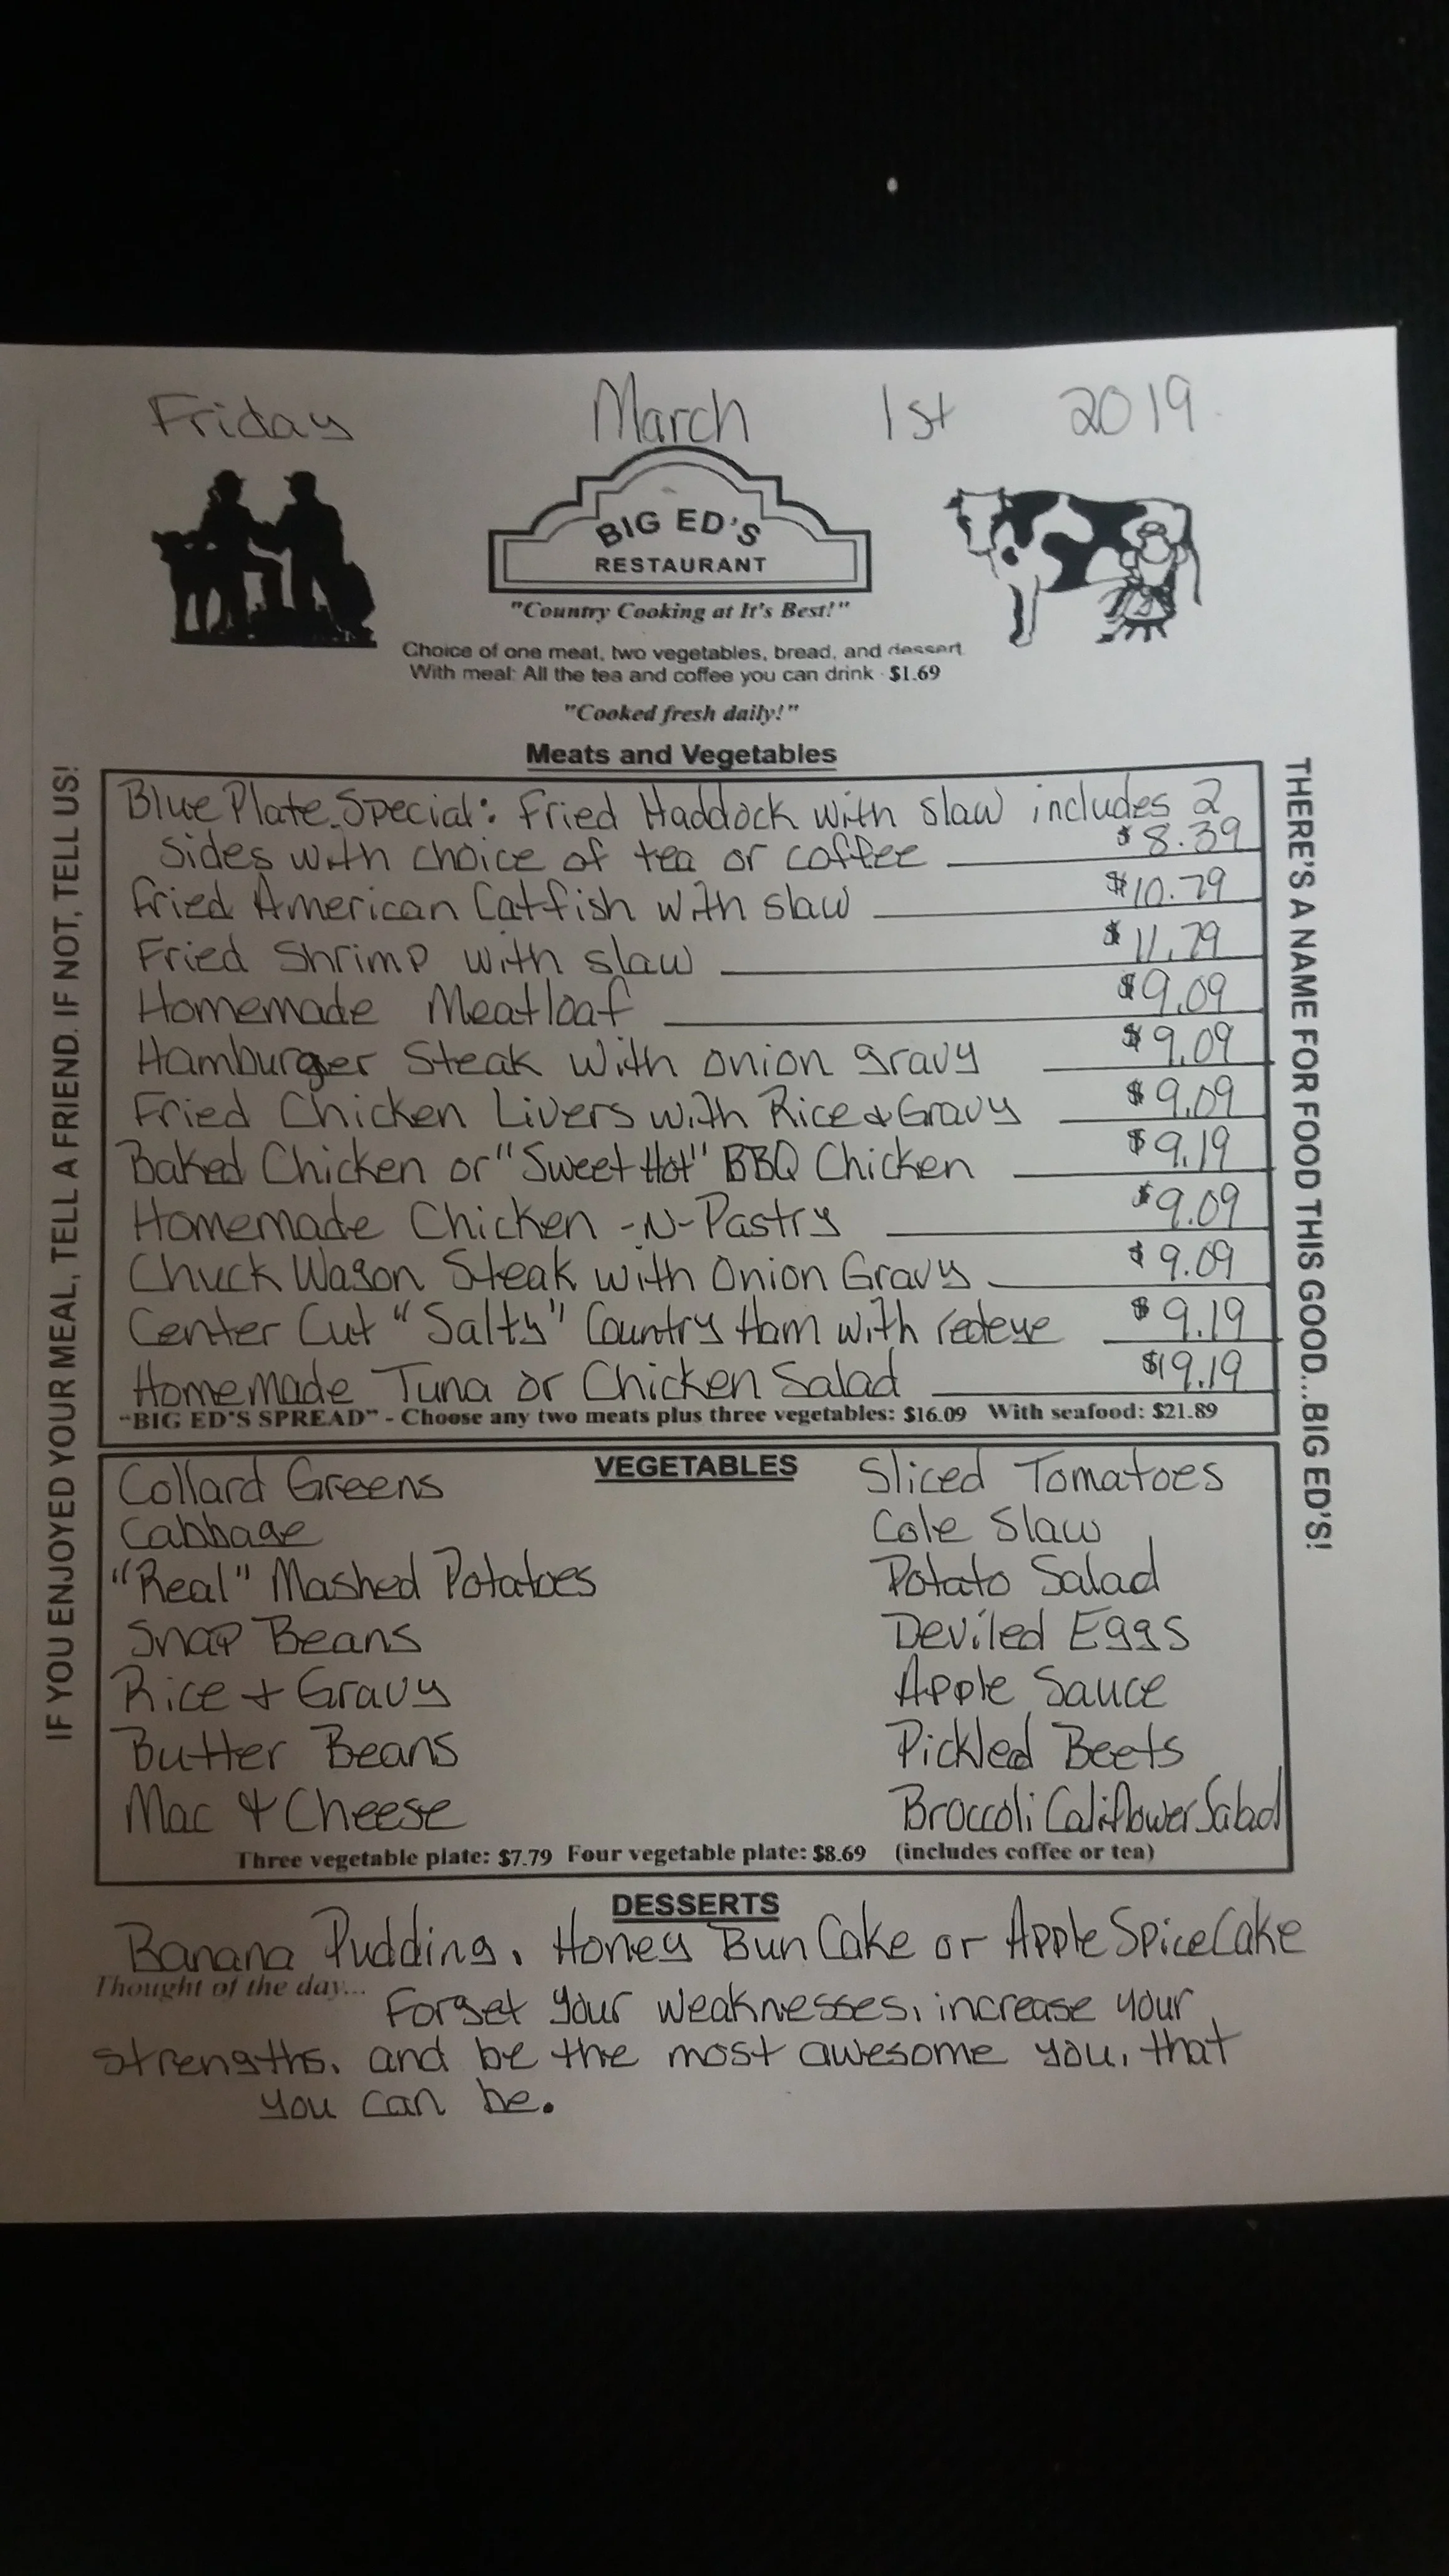 Friday March 1st 2019
BIG ED'S
RESTAURANT
"Country Cooking at It's Best!"
Choice of one meat, two vegetables, bread, and dessert
With meal: All the tea and coffee you can drink - $1.69
"Cooked fresh daily!"
Meats and Vegetables
IF YOU ENJOYED YOUR MEAL, TELL A FRIEND. IF NOT, TELL US!
THERE'S A NAME FOR FOOD THIS GOOD...BIG ED'S!
Blue Plate Special: Fried Haddock with slaw includes 2
sides with choice of tea or coffee $8.39
Fried American Catfish with slaw $10.79
Fried Shrimp with slaw $11.79
Homemade Meatloaf $9.09
Hamburger Steak with onion gravy $9.09
Fried Chicken Livers with Rice & Gravy $9.09
Baked Chicken or "Sweet Hot" BBQ Chicken $9.19
Homemade Chicken -N- Pastry $9.09
Chuck Wagon Steak with Onion Gravy $9.09
Center Cut "Salty" Country Ham with redeye $9.19
Homemade Tuna or Chicken Salad $9.19
"BIG ED'S SPREAD" - Choose any two meats plus three vegetables: $16.09 With seafood: $21.89
VEGETABLES
Collard Greens Sliced Tomatoes
Cabbage Cole Slaw
"Real" Mashed Potatoes Potato Salad
Snap Beans Deviled Eggs
Rice + Gravy Apple Sauce
Butter Beans Pickled Beets
Mac & Cheese Broccoli Califlower Salad
Three vegetable plate: $7.79 Four vegetable plate: $8.69 (includes coffee or tea)
DESSERTS
Banana Pudding, Honey Bun Cake or Apple Spice Cake
Thought of the day...
Forget your weaknesses, increase your
strengths, and be the most awesome you, that
you can be.